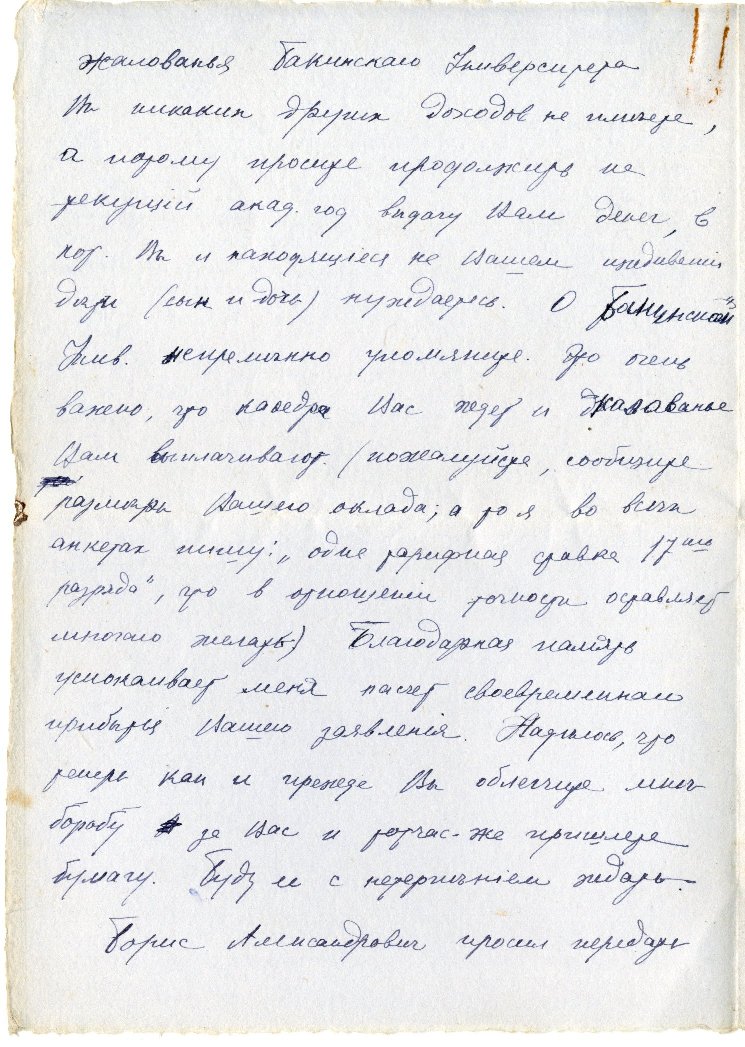 жалованья Бакинскаго Университета
Вы никаких других доходов не имеете,
а потому просите продолжить на
текущій акад. год выдачу Вам денег, в
кот. Вы и находящіеся на Вашем иждивеніи
дети (сын и дочь) нуждаетесь. О Бакинском
Унив. непременно упомяните. Это очень
важно, что кафедра Вас ждет и жалованье
Вам выплачивают. (пожалуйста, сообщите
размеры Вашего оклада; а то я во всех
анкетах пишу: „одна тарифная ставка 17го
разряда", что в отношеніи точности оставляет
многаго желать.) Благодарная память
успокаивает меня насчет своевременнаго
прибытія Вашего заявленія. Надеюсь, что
теперь как и прежде Вы облегчите мне
борьбу за Вас и тотчас-же пришлете
бумагу. Буду ея с нетерпъніем ждать.
Борис Александрович просил передать